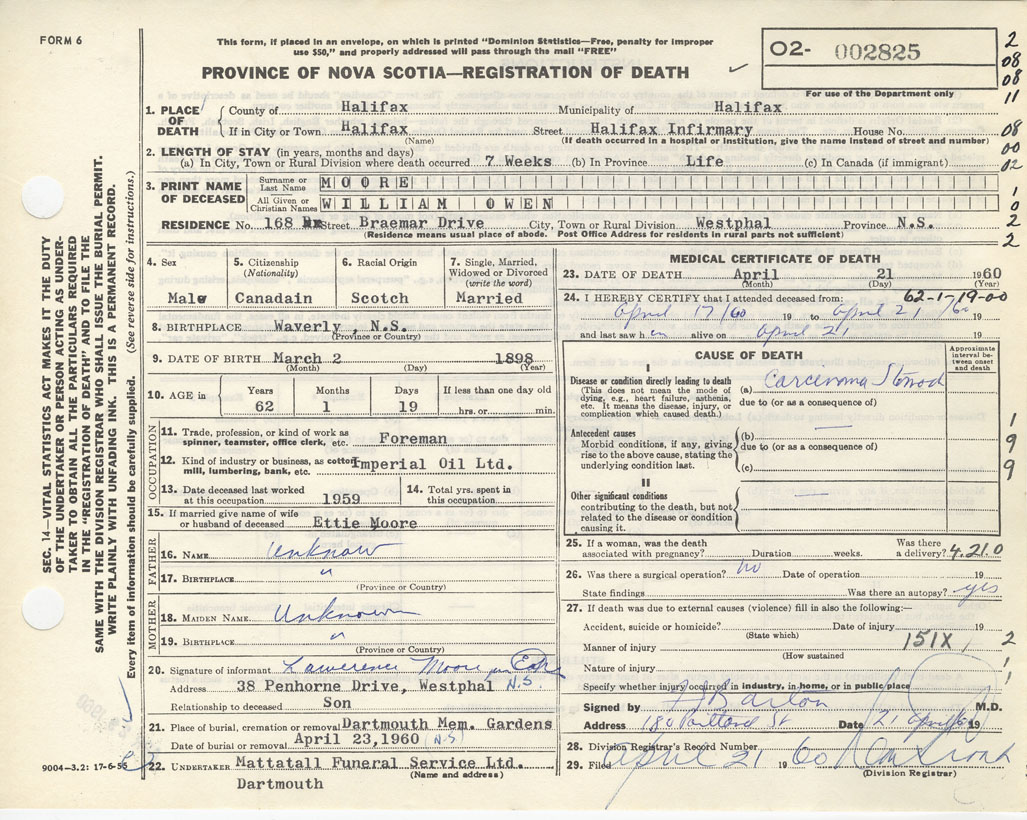 FORM 6
This form, if placed in an envelope, on which is printed "Dominion Statistics—Free, penalty for improper
use $50," and properly addressed will pass through the mail "FREE"
PROVINCE OF NOVA SCOTIA—REGISTRATION OF DEATH
02- 002825
For use of the Department only
2
08
08
11
08
00
02
1
0
2
2
1. PLACE OF DEATH County of Halifax Municipality of Halifax
If in City or Town Halifax Street Halifax Infirmary House No.
(Name) (If death occurred in a hospital or Institution, give the name instead of street and number)
2. LENGTH OF STAY (in years, months and days)
(a) In City, Town or Rural Division where death occurred 7 Weeks (b) In Province Life (c) In Canada (if immigrant)
3. PRINT NAME OF DECEASED Surname or Last Name MOORE
All Given or Christian Names WILLIAM OWEN
RESIDENCE No. 168 Street Braemar Drive City, Town or Rural Division Westphal Province N.S.
(Residence means usual place of abode. Post Office Address for residents in rural parts not sufficient)
SEC. 14—VITAL STATISTICS ACT MAKES IT THE DUTY
OF THE UNDERTAKER OR PERSON ACTING AS UNDER-
TAKER TO OBTAIN ALL THE PARTICULARS REQUIRED
IN THE "REGISTRATION OF DEATH" AND TO FILE THE
SAME WITH THE DIVISION REGISTRAR WHO SHALL ISSUE THE BURIAL PERMIT.
WRITE PLAINLY WITH UNFADING INK. THIS IS A PERMANENT RECORD.
Every item of information should be carefully supplied. (See reverse side for instructions.)
4. Sex
Male
5. Citizenship
(Nationality)
Canadain
6. Racial Origin
Scotch
7. Single, Married,
Widowed or Divorced
(write the word)
Married
8. BIRTHPLACE Waverly , N.S.
(Province or Country)
9. DATE OF BIRTH March 2 1898
(Month) (Day) (Year)
10. AGE in Years Months Days If less than one day old
62 1 19 hrs. or min.
OCCUPATION
11. Trade, profession, or kind of work as
spinner, teamster, office clerk, etc. Foreman
12. Kind of industry or business, as cotton
mill, lumbering, bank, etc. Imperial Oil Ltd.
13. Date deceased last worked
at this occupation 1959
14. Total yrs. spent in
this occupation
15. If married give name of wife
or husband of deceased Ettie Moore
FATHER
16. NAME Unknow
17. BIRTHPLACE "
(Province or Country)
MOTHER
18. MAIDEN NAME Unknown
19. BIRTHPLACE "
(Province or Country)
20. Signature of informant Lawerence Moore
Address 38 Penhorne Drive, Westphal N.S.
Relationship to deceased Son
21. Place of burial, cremation or removal Dartmouth Mem. Gardens
Date of burial or removal April 23,1960 (N.S)
22. UNDERTAKER Mattatall Funeral Service Ltd.
(Name and address)
Dartmouth
9004—3.2: 17-6-55
MEDICAL CERTIFICATE OF DEATH
23. DATE OF DEATH April 21 1960
(Month) (Day) (Year)
24. I HEREBY CERTIFY that I attended deceased from: 62-1-19-00
April 17/60 19 to April 21 /60 19
and last saw h im alive on April 21 19
CAUSE OF DEATH
Approximate
interval be-
tween onset
and death
I
Disease or condition directly leading to death
(This does not mean the mode of
dying, e.g., heart failure, asthenia,
etc. It means the disease, injury, or
complication which caused death.)
(a) Carcinoma
due to (or as a consequence of)
Antecedent causes
Morbid conditions, if any, giving
rise to the above cause, stating the
underlying condition last.
(b)
due to (or as a consequence of)
(c)
II
Other significant conditions
contributing to the death, but not
related to the disease or condition
causing it.
1
9
9
25. If a woman, was the death
associated with pregnancy? Duration weeks. Was there
a delivery? 4.21.0
26. Was there a surgical operation? no Date of operation 19
State findings Was there an autopsy? yes
27. If death was due to external causes (violence) fill in also the following:—
Accident, suicide or homicide? Date of injury 19
(State which)
Manner of injury 151X
(How sustained)
Nature of injury
Specify whether injury occurred in industry, in home, or in public place
2
1
1
Signed by Barton M.D.
Address 180 Portland St Date 21 April 60 19
28. Division Registrar's Record Number
29. Filed April 21 1960
(Division Registrar)